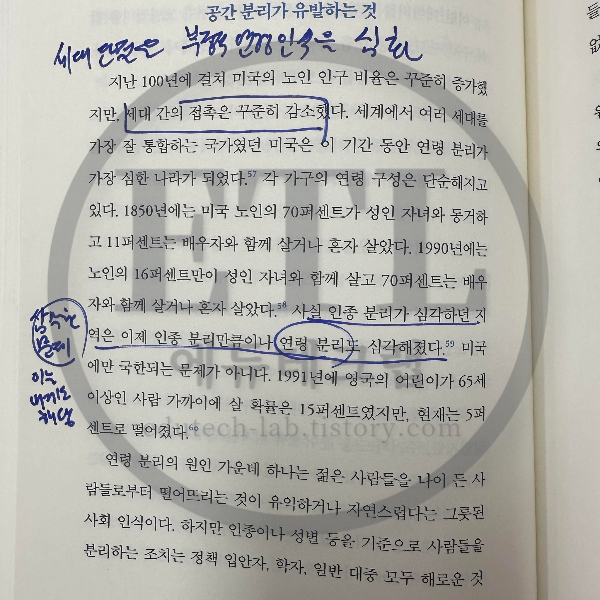 공간 분리가 유발하는 것
세대 단절은 부정적 연령인식을 심화
지난 100년에 걸쳐 미국의 노인 인구 비율은 꾸준히 증가했
지만, 세대 간의 접촉은 꾸준히 감소했다. 세계에서 여러 세대를
가장 잘 통합하는 국가였던 미국은 이 기간 동안 연령 분리가
가장 심한 나라가 되었다.57 각 가구의 연령 구성은 단순해지고
있다. 1850년에는 미국 노인의 70퍼센트가 성인 자녀와 동거하
고 11퍼센트는 배우자와 함께 살거나 혼자 살았다. 1990년에는
노인의 16퍼센트만이 성인 자녀와 함께 살고 70퍼센트는 배우
자와 함께 살거나 혼자 살았다.58 사실 인종 분리가 심각하던 지
역은 이제 인종 분리만큼이나 연령 분리도 심각해졌다.59 미국
에만 국한되는 문제가 아니다. 1991년에 영국의 어린이가 65세
이상인 사람 가까이에 살 확률은 15퍼센트였지만, 현재는 5퍼
센트로 떨어졌다.60
심각한
문제
이는
해당
연령 분리의 원인 가운데 하나는 젊은 사람들을 나이 든 사
람들로부터 떨어뜨리는 것이 유익하거나 자연스럽다는 그릇된
사회 인식이다. 하지만 인종이나 성별 등을 기준으로 사람들을
분리하는 조치는 정책 입안자, 학자, 일반 대중 모두 해로운 것
ETL
에듀테크랩
edutech-lab.tistory.com
들
없